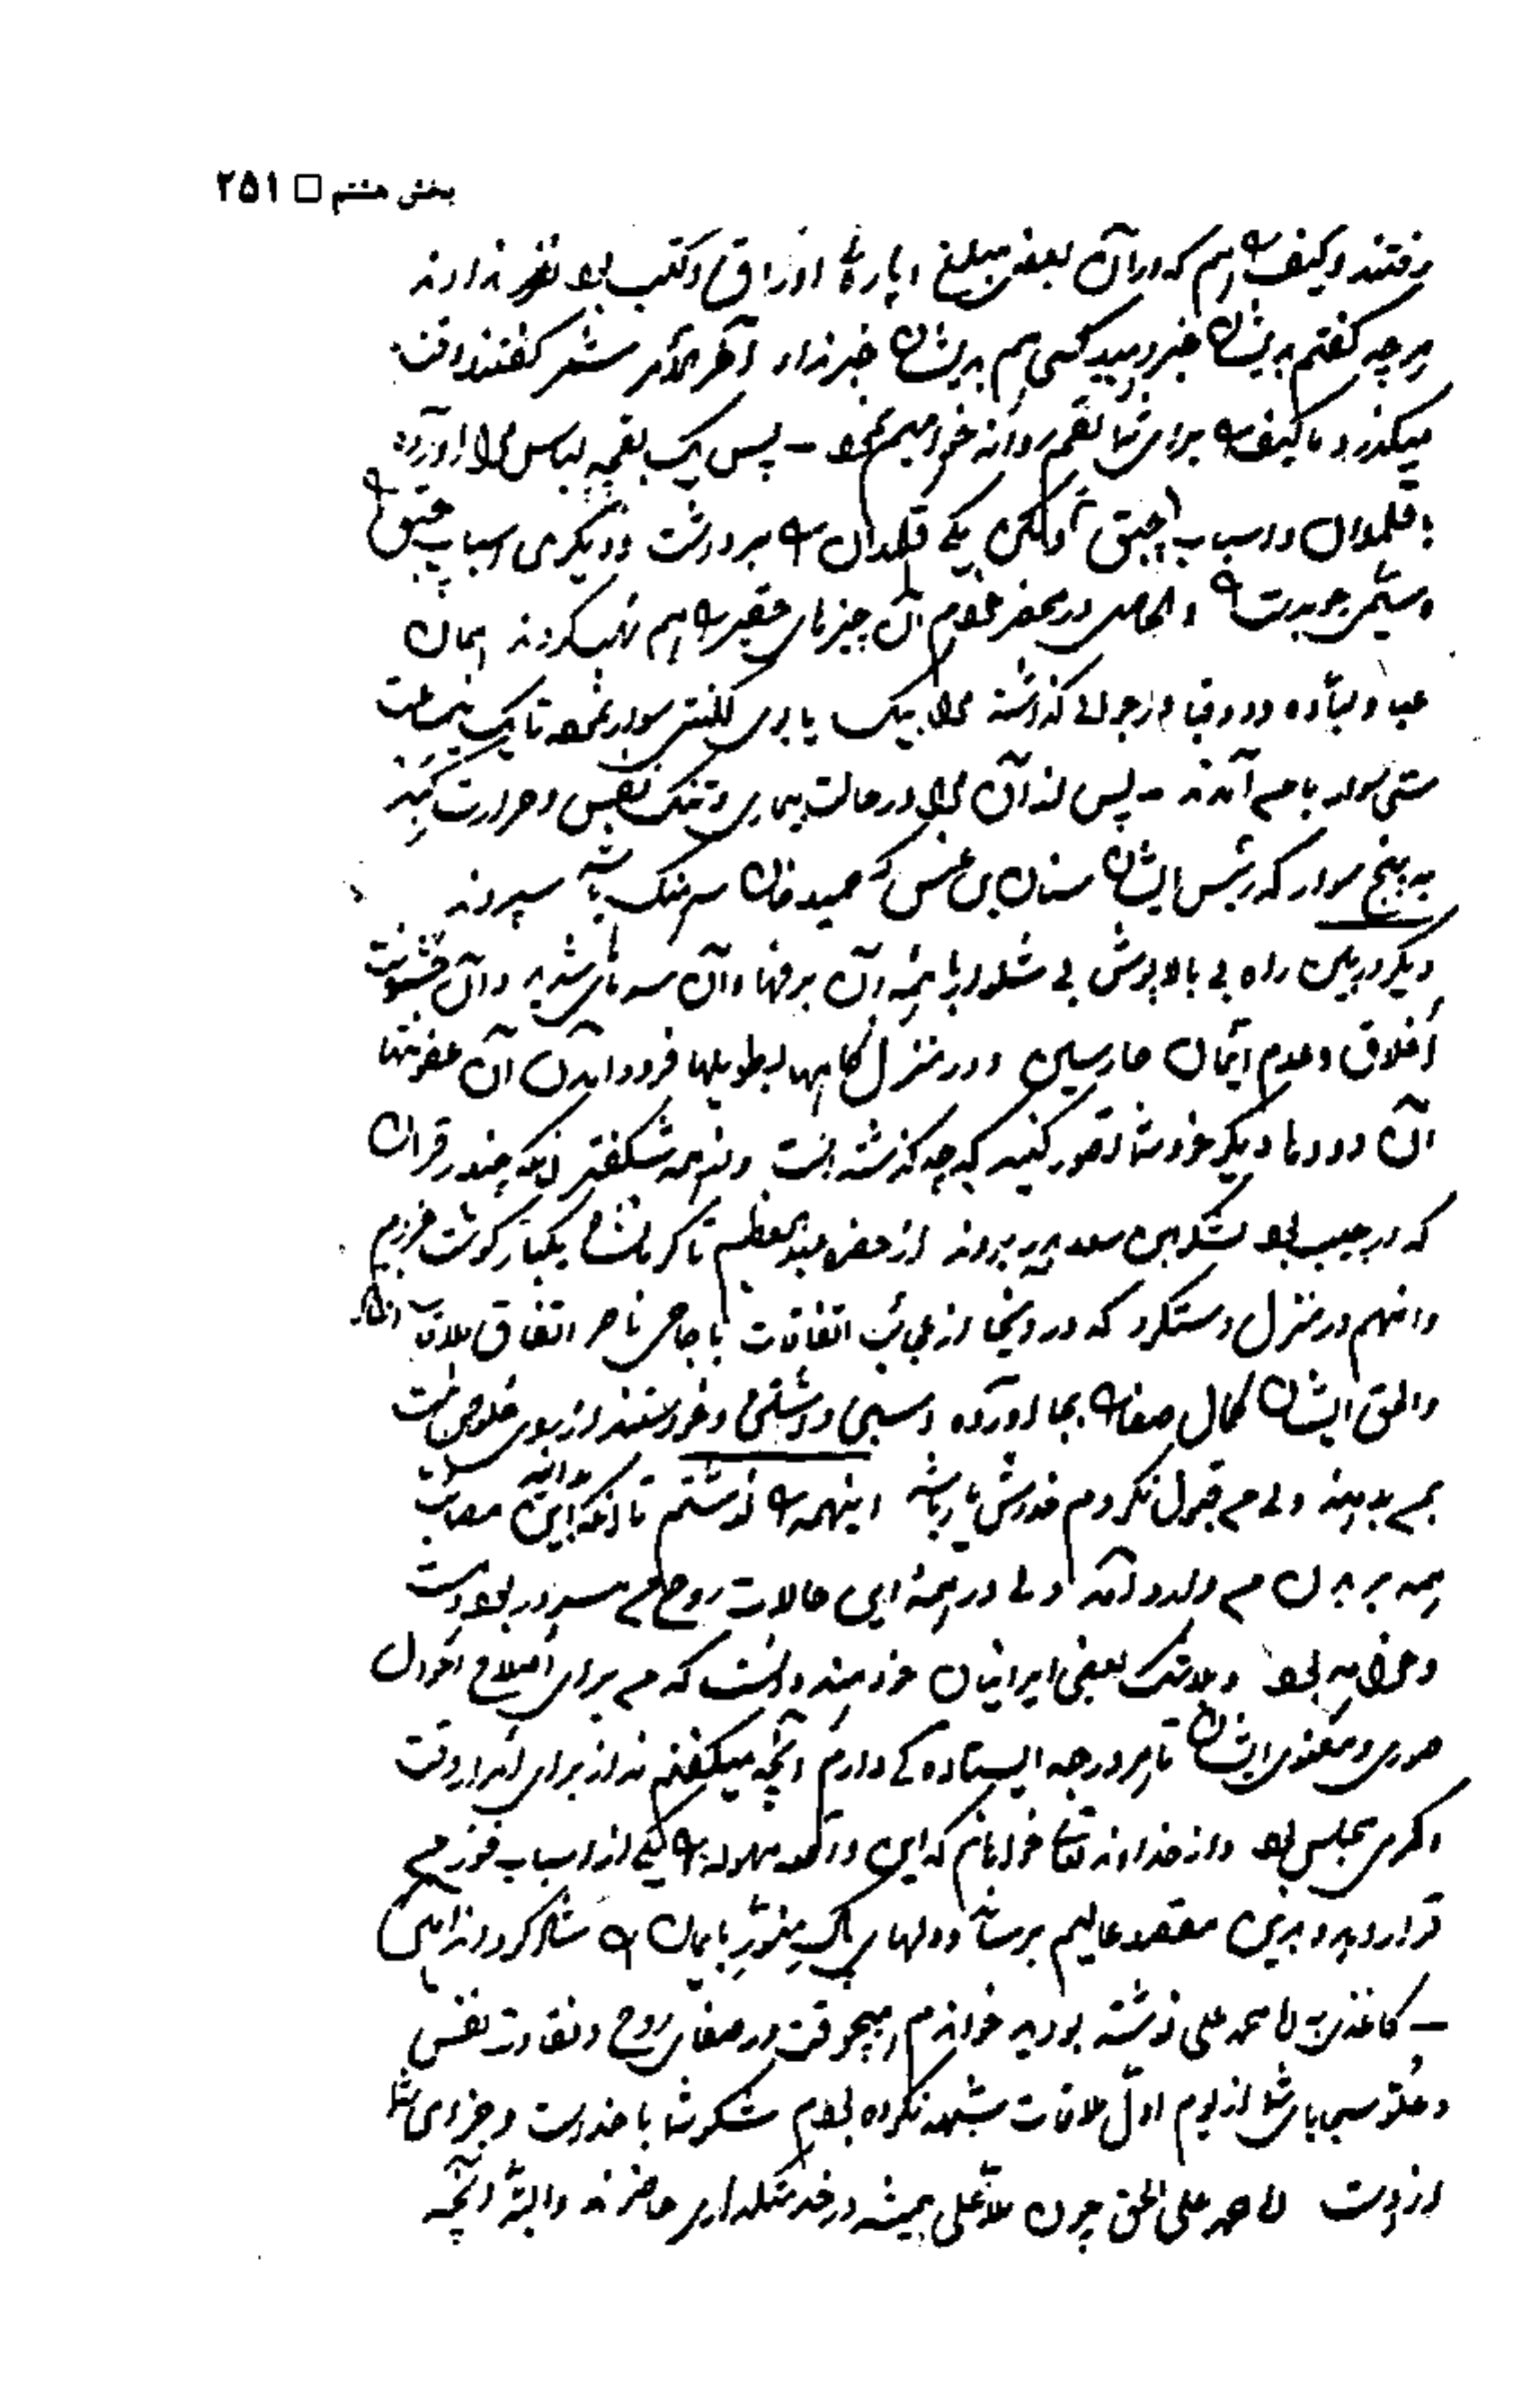 بخش هشتم □ ۲۵۱
رفتند و کیف را هم که در آن بعضی مبلغ و پارهٔ اوراق و کتب بود بقم ندادند
هر چه گفتم بایشان خبر دهید کسی هم بایشان خبر نداد آخر الأمر گفتند وقت
میگذرد ما کیف را برای شما بقم روانه خواهیم نمود - پس یک بقچه لباس مرا آورده
با قلمدان و اسباب چپق و لکن یکی قلمدان را برداشت و دیگری اسباب چپق را
و سیمی جوراب را والحاصل در محضر غلام آن چیزهای حقیر را هم نهب کردند همان
عبا و لباده و دو قبا در جوال گذاشته مرا بیک یابوی لکنتی سوار نموده تا یک
ستی سوار با من آمدند - پس از آن مرا در حالت بیماری و تنگ نفس و حرارت کبد
به پنج سوار که رئیس ایشان سنان بن انس حمید خان سرهنگ باشد سپردند
دیگر در بین راه بی بالاپوش بی شلوار با همهٔ آن برفها و آن سرمای شدید و آن خشونت
أخلاق و عدم ایمان حارسین و در منزل گاهها بطویلها فرود آمدن آن عفونتها
آن دودها دیگر خود شما تصور کنید که چه گذشته است و از همه شگفتر آنکه چند قران
که در جیب بود لشکر ابن سعد بردند از حضرت عبدالعظیم تا کرمانشاه یکبار گوشت خوردیم
و آنهم در منزل دستگرد که در آنجا از عجائب اتفاقات با حاجی ناصر اتفاق ملاقات افتاد
والحق ایشان کمال صفا را بجا آورده اسبی داشتند و خواستند از بوی خلوص نیت
بمن بدهند ولی من قبول نکردم خدایش یار باد اینهمه را نوشتم تا آنکه بدانید این مصائب
همه بر بدن من وارد آمد ولی در همهٔ این حالات روح من مسرور بود و هست
و خواهد بود و بلاشک بعضی ایرانیان خواهند دانست که من برای اصلاح احوال
صوری و معنوی ایشان تا چه درجه ایستادگی دارم و آنچه میگفتم نه از برای امرار وقت
و گرمی مجلس بود و از خداوند تعالی خواهانم که این را یکی از اسباب فوز من
قرار دهد و بدین مقصد عالیم برساند و دلهای پاک منور بایمان را شاد گرداند آمین
- کاغذی به حاج محمد علی نوشته بودید خواندم هیچوقت در صفای روح و نقاوت نفس
و علو سجایای شما از یوم اول ملاقات شبهه نکرده بودم شکر شما با خداست و جزای شما
از اوست حاج محمد علی الحق چون ملا علی همیشه در خدمتگذاری حاضرند و البته آنچه